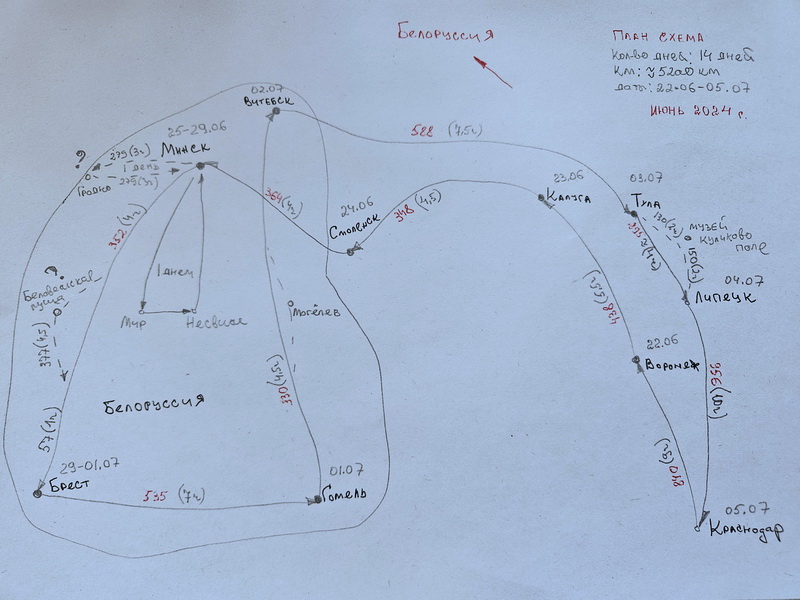 Белоруссия
План схема
Кол-во дней: 14 дней
Км: ≈ 5200 км
даты: 22.06-05.07
Июнь 2024 г.
02.07
Витебск
25-29.06
Минск
?
279(3ч)
1 день
279(3ч)
Гродно
588 (7,5ч)
23.06
Калуга
03.07
Тула
130(2ч)
музей
Куликово
поле
150(2ч)
(4ч)
364(4ч)
24.06
Смоленск
348 (4,5)
352 (4ч)
1 днем
Мир
Несвиж
?
Беловежская
пуща
377(4,5)
57(1ч)
Могелев
330(4,5ч)
438 (5,5ч)
04.07
Липецк
22.06
Воронеж
956(10ч)
840 (9ч)
Белоруссия
29-01.07
Брест
535 (7ч)
01.07
Гомель
05.07
Краснодар